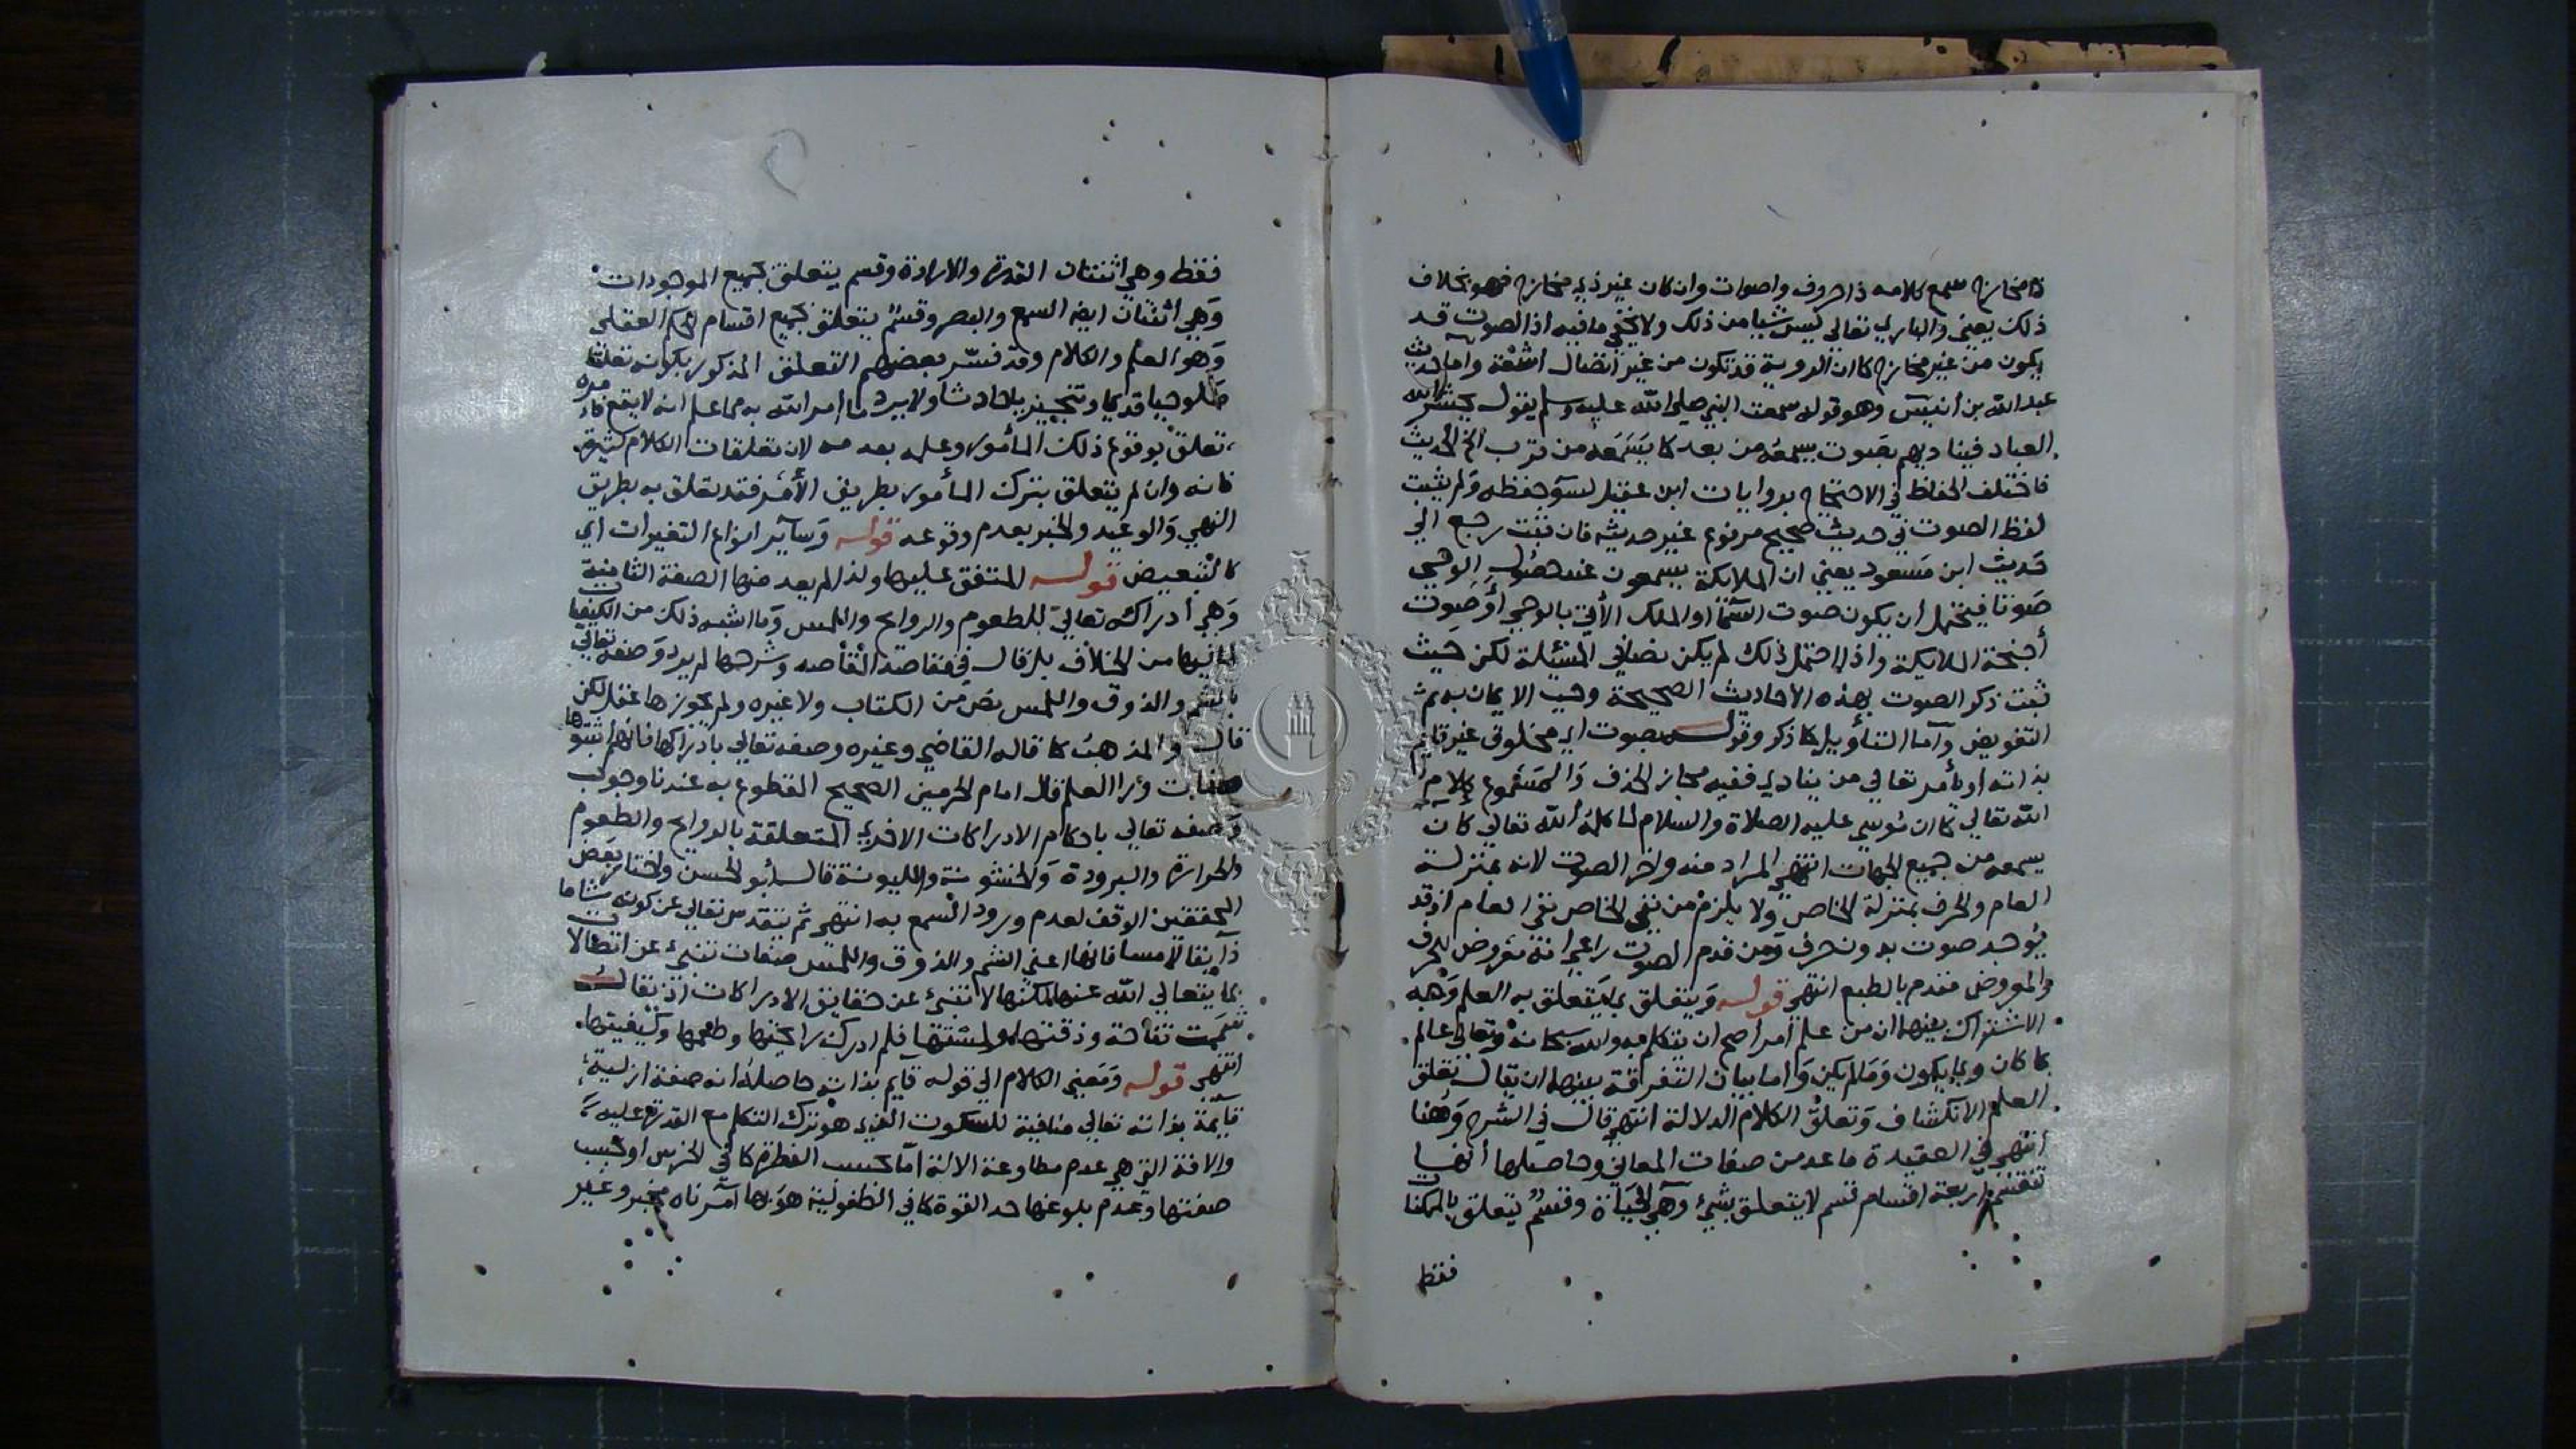 ذا مخارج سمع كلامه ذا حروف واصوات وان كان غير ذي مخارج فهو بخلاف
ذلك يعني والباري تعالي ليس شيا من ذلك ولا يخفي ما فيه اذ الصوت قد
يكون من غير مخارج كما ان الروية قد تكون من غير اتصال اشعة واما حديث
عبد الله بن أنيس وهو قوله سمعت النبي صلي الله عليه وسلم يقول يحشر الله
العباد فيناديهم بصوت يسمعه من بعد كما يسمعه من قرب الخ الحديث
فاختلف الحفاظ في الاحتجاج بروايات ابن عقيل لسوء حفظه ولم يثبت
لفظ الصوت في حديث صحيح مرفوع غير حديثه فان ثبت رجع الي
حديث ابن مسعود يعني ان الملايكة يسمعون عند حصول الوحي
صوتا فيحتمل ان يكون صوت السما او الملك الآتي بالوحي أو صوت
أجنحة الملايكة واذا احتمل ذلك لم يكن نصا في المسئلة لكن حيث
ثبت ذكر الصوت بهذه الأحاديث الصحيحة وجب الايمان به ثم
التفويض وأما التأويل كما ذكر وقوله بصوت اي مخلوق غير قايم
بذاته او يأمر تعالي من ينادي ففيه مجاز الحذف والمسموع كلام
الله تعالي كما ان موسي عليه الصلاة والسلام لما كلمه الله تعالي كان
يسمعه من جميع الجهات انتهي المراد منه واخر الصوت لانه بمنزلة
العام والحرف بمنزلة الخاص ولا يلزم من نفي الخاص نفي العام اذ قد
يوجد صوت بدون حرف ومن قدم الصوت راعي انه معروض للحرف
والمعروض مقدم بالطبع انتهي قوله ويتعلق بما يتعلق به العلم وجه
الاشتراك بينهما ان من علم أمرا صح ان يتكلم به والله سبحانه وتعالي عالم
بما كان وما يكون وما لم يكن واما بيان التفرقة بينهما ان يقال تعلق
العلم الانكشاف وتعلق الكلام الدلالة انتهي قال في الشرح وهنا
أنتهي في العقيدة ما عد من صفات المعاني وحاصلها أنها
تنقسم اربعة اقسام قسم لا يتعلق بشيء وهي الحياة وقسم يتعلق بالممكنات
فقط
فقط وهي اثنتان القدرة والارادة وقسم يتعلق بجميع الموجودات
وهي اثنتان ايضا السمع والبصر وقسم يتعلق بجميع اقسام الحكم العقلي
وهو العلم والكلام وقد فسر بعضهم التعلق المذكور بكونه تعلقا
صلوحيا قديما وتنجيزيا حادثا ولا يرد ما أمر الله به مما علم انه لا يقع فامره
تعلق بوقوع ذلك المأمور وعلمه بعدمه لان تعلقات الكلام كثيرة
فانه وان لم يتعلق بترك المأمور بطريق الأمر فقد تعلق به بطريق
النهي والوعيد والخبر بعدم وقوعه قوله وساير انواع التغيرات اي
كالتبعيض قوله المتفق عليها ولذا لم يعد منها الصفة الثامنة
وهي أدراكه تعالي للطعوم والروايح واللمس وما اشبه ذلك من الكيفيا
لما فيها من الخلاف بل قال في مقاصد المقاصد وشرحها لم يرد وصفه تعالي
بالشم والذوق واللمس نص من الكتاب ولا غيره ولم يجوزها عقل لكن
قال والمذهب كما قاله القاضي وغيره وصفه تعالي بادراكها فانهم أثبتوها
صفات ورا العلم قال امام الحرمين الصحيح المقطوع به عندنا وجوب
وصفه تعالي باحكام الادراكات الاخري المتعلقة بالروايح والطعوم
والحرارة والبرودة والخشونة والليونة قال أبو الحسن واختار بعض
المحققين الوقف لعدم ورود السمع به انتهي ثم يتقدس تعالي عن كونه شاما
ذايقا لامسا فانها اعني الشم والذوق واللمس صفات تنبيء عن اتصالات
بما يتعالي الله عنها لكنها لا تنبيء عن حقايق الادراكات اذ يقال
شممت تفاحة وذقتها ولمستها فلم ادرك رايحتها وطعمها وكيفيتها
انتهي قوله ومعني الكلام الي قوله قايم بذاته حاصله انه صفة ازلية
قايمة بذاته تعالي منافية للسكون الذي هو ترك التكلم مع القدرة عليه
والافة التي هي عدم مطاوعة الالة اما بحسب الفطرة كما في الخرس او بحسب
ضعفها وعدم بلوغها حد القوة كما في الطفولية هو بها آمر ناه مخبر وغير